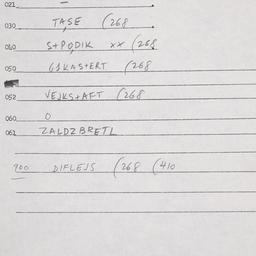 021 —
030 TAŞE (268
040 S+PODIK xx (268
050 61KAS+ERT (268
052 VEJKS+AFT (268
060 0
061 ZALDZBRETL
900 DIFLEJS (268 (410